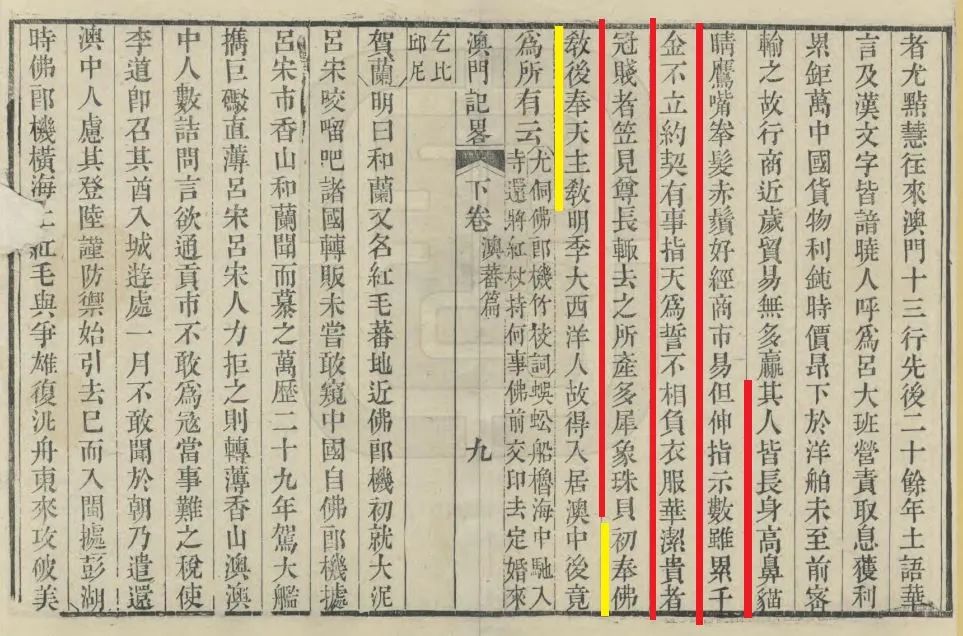 者尤點慧往來澳門十三行先後二十餘年土語華
言及漢文字皆諳曉人呼為呂大班營責取息獲利
累鉅萬中國貨物利鈍時價昂下於洋舶未至前密
輸之故行商近歲貿易無多贏其人皆長身高鼻貓
睛鷹嘴拳髮赤鬚好經商市易但伸指示數雖累千
金不立約契有事指天為誓不相負衣服華潔貴者
冠賤者笠見尊長輒去之所產多犀象珠貝初奉佛
敎後奉天主敎明季大西洋人故得入居澳中後竟
為所有云
尤侗佛郎機竹枝詞蜈蚣船櫓海中馳入
寺還將紅杖持何事佛前交印去定婚來
澳門記畧
下卷
澳蕃篇
九
乞比
邱尼
賀蘭明曰和蘭又名紅毛蕃地近佛郎機初就大泥
呂宋咬𠺕吧諸國轉販未嘗敢窺中國自佛郎機據
呂宋市香山和蘭聞而慕之萬歷二十九年駕大艦
攜巨礮直薄呂宋呂宋人力拒之則轉薄香山澳澳
中人數詰問言欲通貢市不敢為寇當事難之稅使
李道卽召其酋入城遊處一月不敢聞於朝乃遣還
澳中人慮其登陸謹防禦始引去巳而入閩據彭湖
時佛郎機橫海上紅毛與爭雄復汎舟東來攻破美